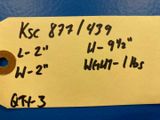 KSC 877/439
L-2" H-9½"
W-2" WEIGHT-1 lbs
QTY 3